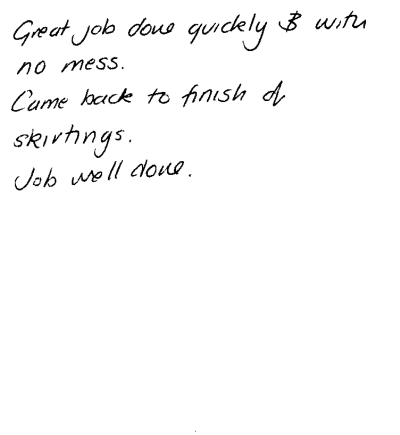 Great job done quickly & with
no mess.
Came back to finish of
skirtings.
Job well done.